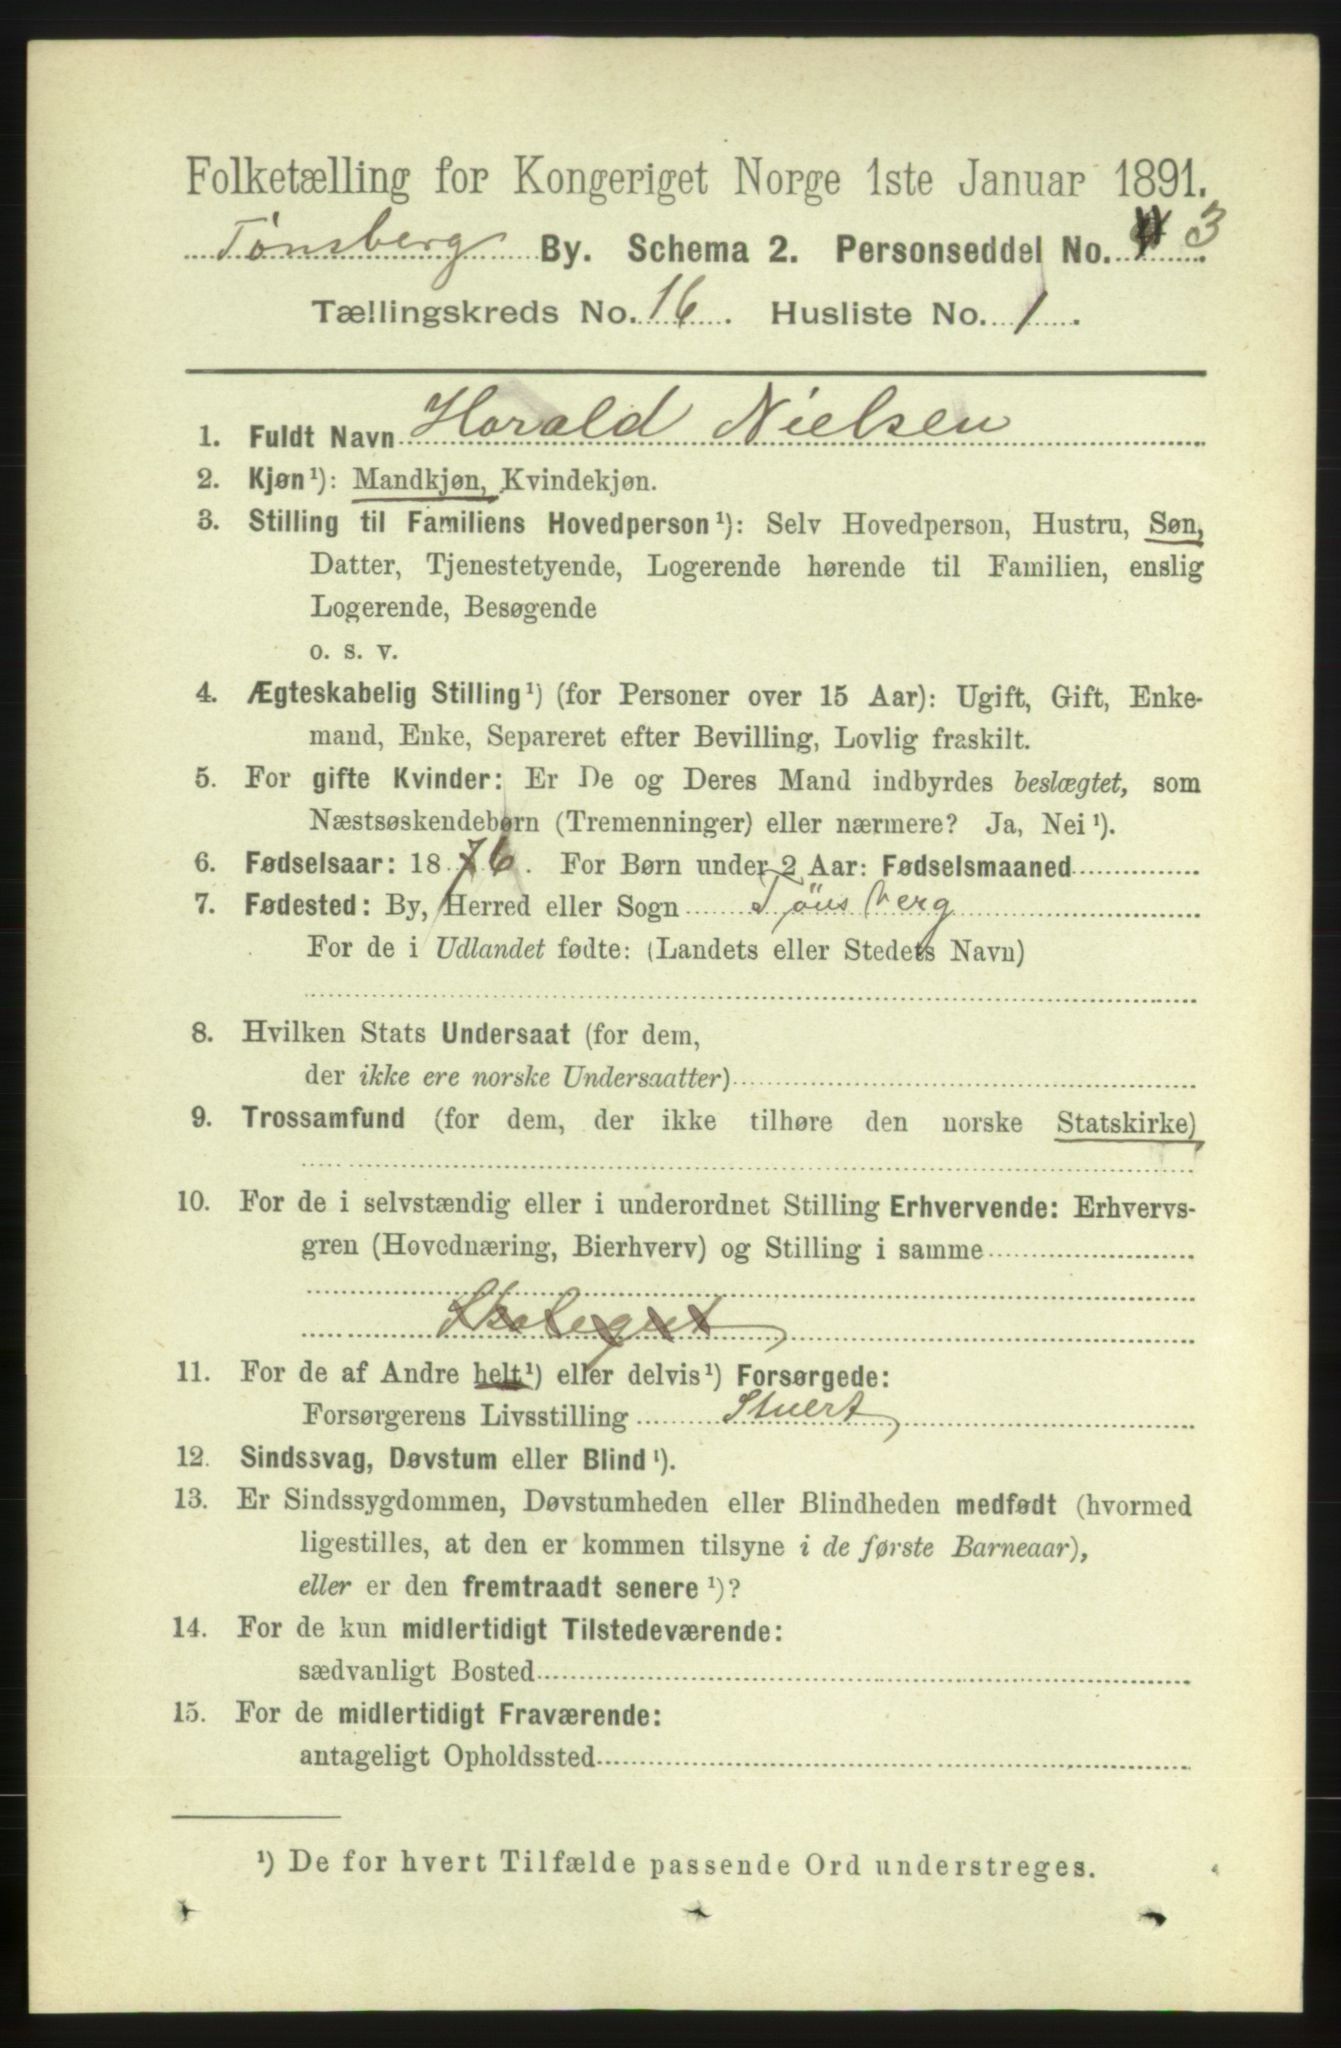 Folketælling for Kongeriget Norge 1ste Januar 1891.
Tønsberg By. Schema 2. Personseddel No. 3
Tællingskreds No. 16. Husliste No. 1.
1. Fuldt Navn Harald Nielsen
2. Kjøn¹): Mandkjøn, Kvindekjøn.
3. Stilling til Familiens Hovedperson¹): Selv Hovedperson, Hustru, Søn,
Datter, Tjenestetyende, Logerende hørende til Familien, enslig
Logerende, Besøgende
o. s. v.
4. Ægteskabelig Stilling¹) (for Personer over 15 Aar): Ugift, Gift, Enke-
mand, Enke, Separeret efter Bevilling, Lovlig fraskilt.
5. For gifte Kvinder: Er De og Deres Mand indbyrdes beslægtet, som
Næstsøskendebørn (Tremenninger) eller nærmere? Ja, Nei¹).
6. Fødselsaar: 1876. For Børn under 2 Aar: Fødselsmaaned
7. Fødested: By, Herred eller Sogn Tönsberg
For de i Udlandet fødte: (Landets eller Stedets Navn)
8. Hvilken Stats Undersaat (for dem,
der ikke ere norske Undersaatter)
9. Trossamfund (for dem, der ikke tilhøre den norske Statskirke)
10. For de i selvstændig eller i underordnet Stilling Erhvervende: Erhvervs-
gren (Hovednæring, Bierhverv) og Stilling i samme
11. For de af Andre helt¹) eller delvis¹) Forsørgede:
Forsørgerens Livsstilling Stuert
12. Sindssvag, Døvstum eller Blind¹).
13. Er Sindssygdommen, Døvstumheden eller Blindheden medfødt (hvormed
ligestilles, at den er kommen tilsyne i de første Barneaar),
eller er den fremtraadt senere¹)?
14. For de kun midlertidigt Tilstedeværende:
sædvanligt Bosted
15. For de midlertidigt Fraværende:
antageligt Opholdssted
¹) De for hvert Tilfælde passende Ord understreges.